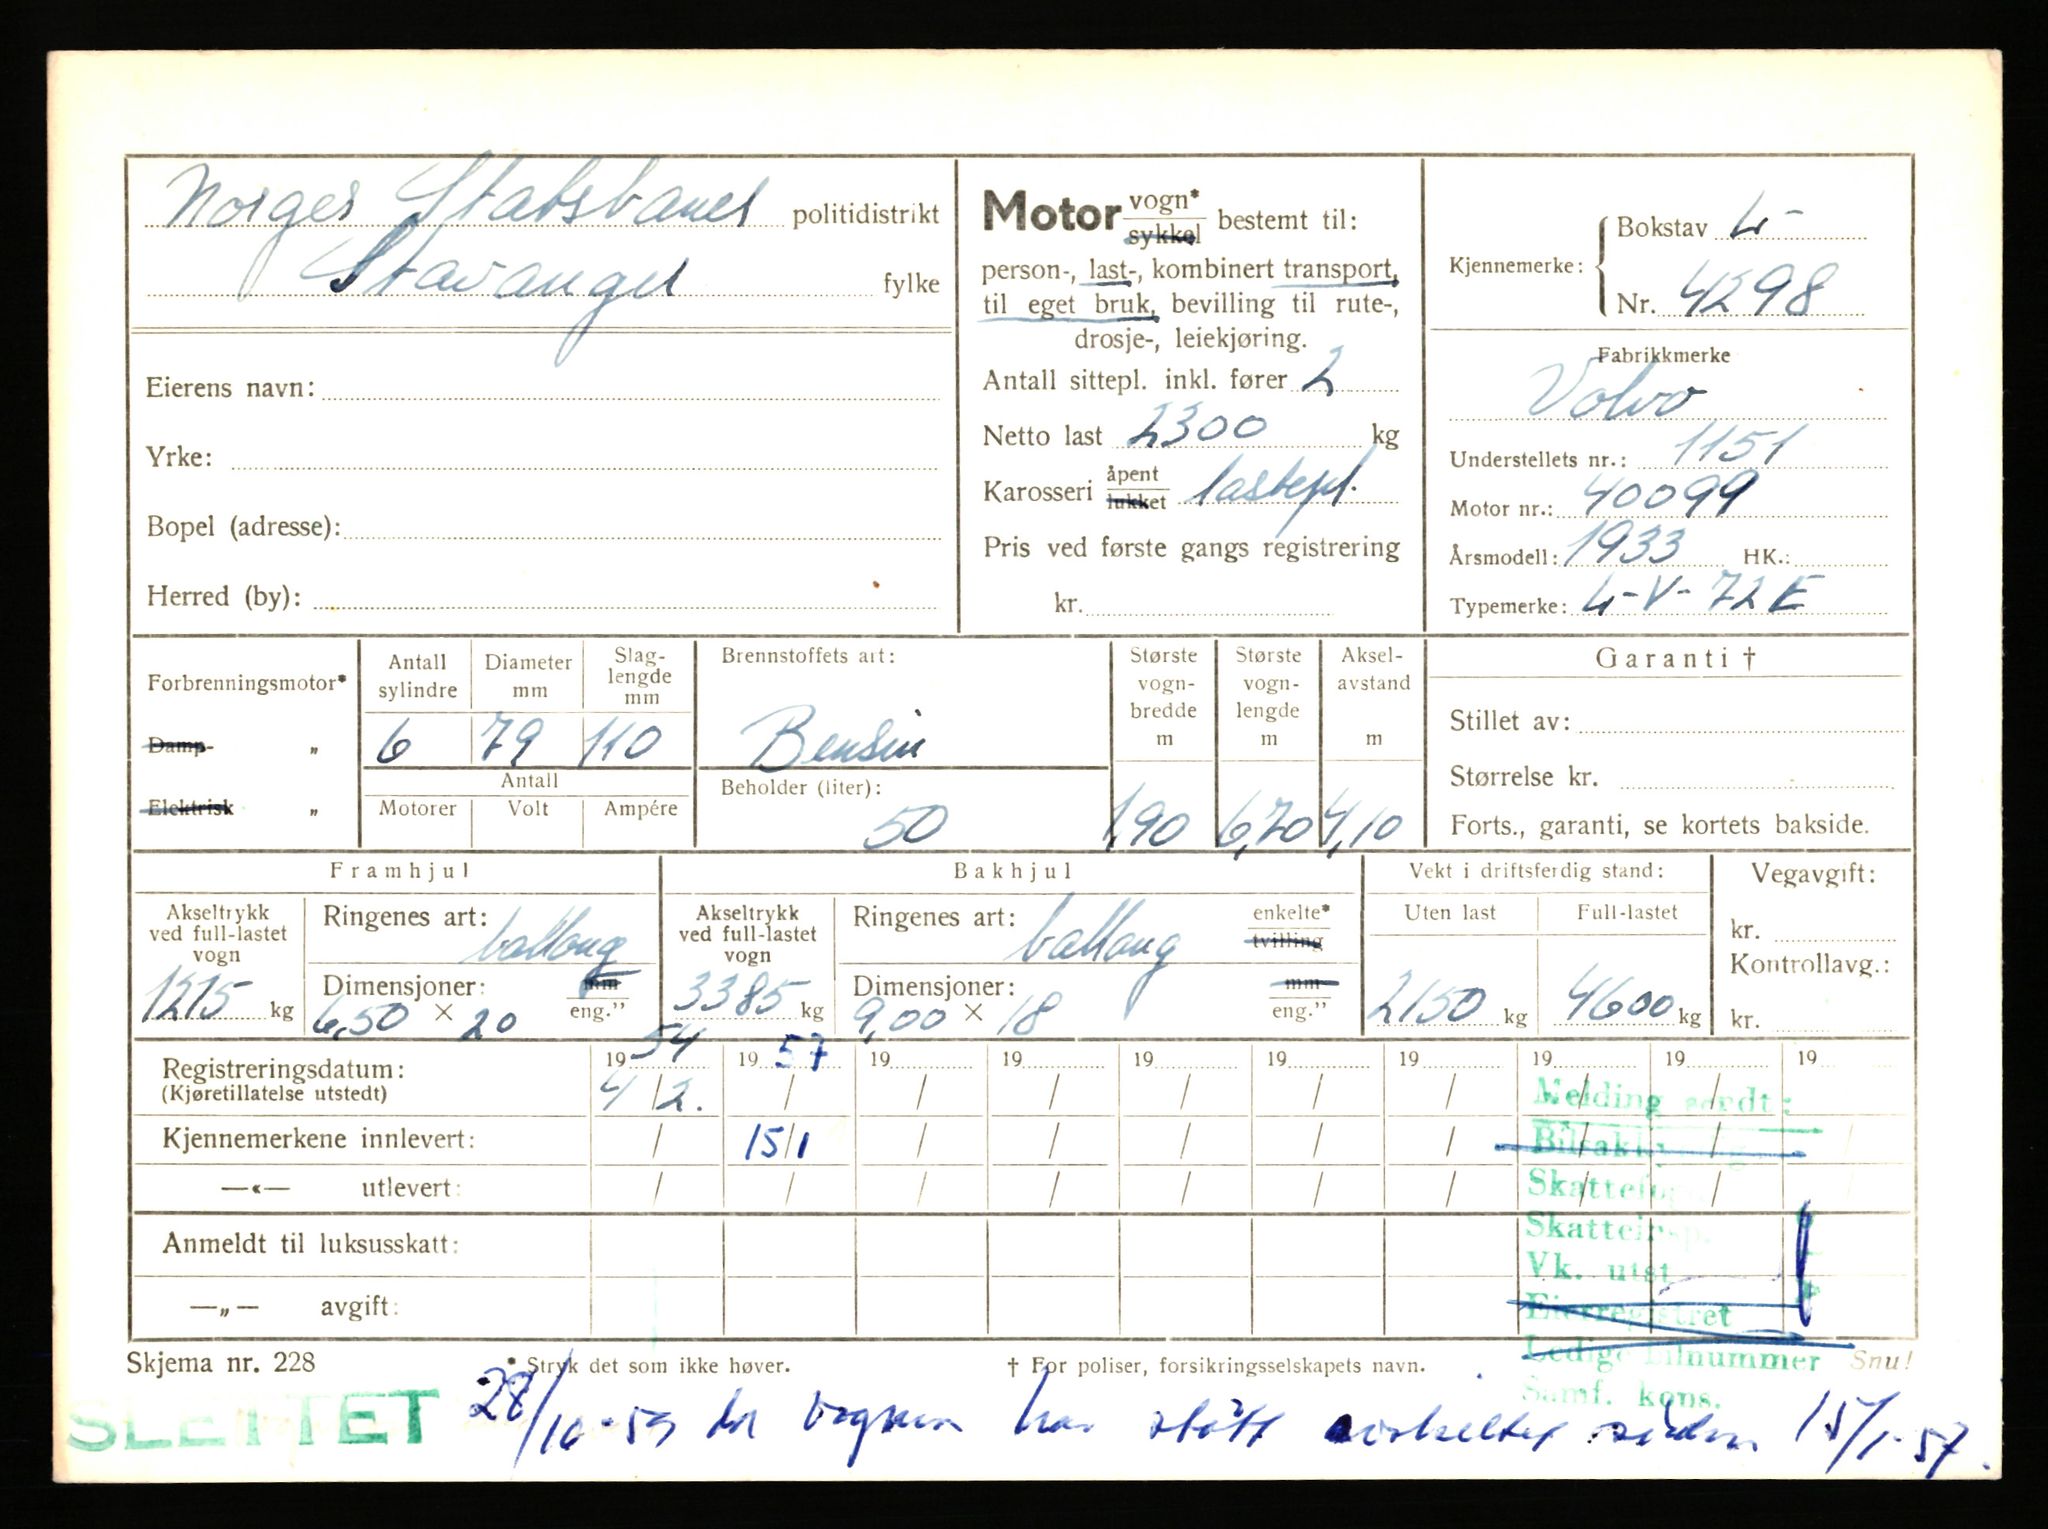 Norges Statsbaner politidistrikt
Stavanger fylke
Eierens navn:
Yrke:
Bopel (adresse):
Herred (by):
Motor vogn* sykkel bestemt til:
person-, last-, kombinert transport,
til eget bruk, bevilling til rute-,
drosje-, leiekjøring.
Antall sittepl. inkl. fører 2
Netto last 2300 kg
Karosseri åpent lukket lastepl.
Pris ved første gangs registrering
kr.
Kjennemerke: Bokstav L-
Nr. 4298
Fabrikkmerke
Volvo
Understellets nr.: 1151
Motor nr.: 40099
Årsmodell: 1933 HK.:
Typemerke: L-V-72E
Forbrenningsmotor*
Damp- „
Elektrisk „
Antall sylindre Diameter mm Slag-lengde mm
6 79 110
Antall
Motorer Volt Ampére
Brennstoffets art:
Bensin
Beholder (liter):
50
Største vogn-bredde m
1,90
Største vogn-lengde m
6,70
Aksel-avstand m
4,10
Garanti †
Stillet av:
Størrelse kr.
Forts., garanti, se kortets bakside.
Framhjul
Akseltrykk ved full-lastet vogn
1215 kg
Ringenes art: ballong
Dimensjoner: mm
6,50 × 20 eng."
Bakhjul
Akseltrykk ved full-lastet vogn
3385 kg
Ringenes art: ballong enkelte* tvilling
Dimensjoner: mm
9,00 × 18 eng."
Vekt i driftsferdig stand:
Uten last Full-lastet
2150 kg 4600 kg
Vegavgift:
kr.
Kontrollavg.:
kr.
Registreringsdatum: 19 54 19 57 19 19 19 19 19 19 19 19
(Kjøretillatelse utstedt) 4/2. / / / / / / / /
Kjennemerkene innlevert: / 15/1 / / / / / / /
—«— utlevert: / / / / / / / / /
Anmeldt til luksusskatt:
—„— avgift:
Melding sendt:
Skatteinsp.
Vk. utst
Eierregistret
Ledige bilnummer
Samf. kons.
Skjema nr. 228 * Stryk det som ikke høver. † For poliser, forsikringsselskapets navn. Snu!
SLETTET 28/10-59 da vognen har stått avskiltet siden 15/1-57.